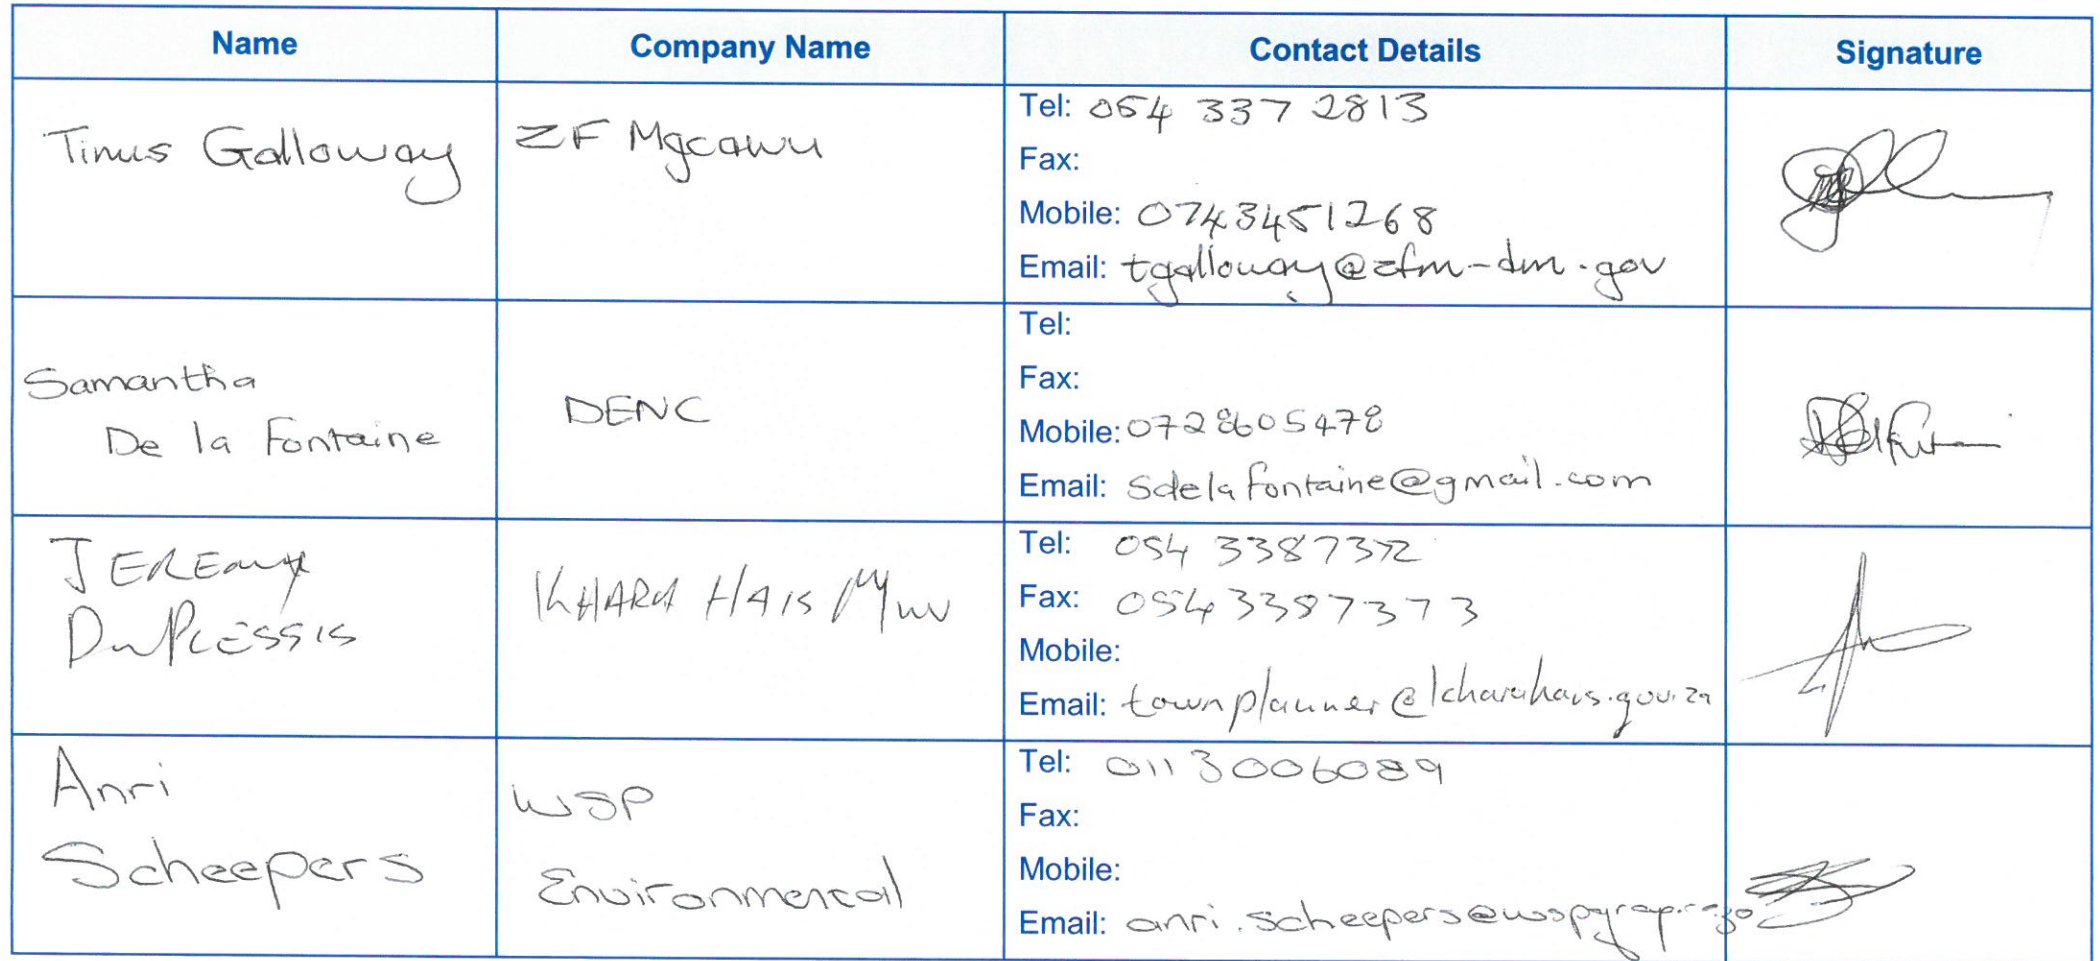 Name Company Name Contact Details Signature
Tinus Galloway ZF Mgcawu
Tel: 054 337 2813
Fax:
Mobile: 0743451268
Email: tgalloway@zfm-dm.gov
Samantha
De la Fontaine
DENC
Tel:
Fax:
Mobile: 0728605478
Email: sdelafontaine@gmail.com
JEREMY
DuPLESSIS
KHARA HAIS Mun
Tel: 054 3387372
Fax: 054 3387373
Mobile:
Email: townplanner@kharahais.gov.za
Anri
Scheepers
WSP
Environmental
Tel: 0113006089
Fax:
Mobile:
Email: